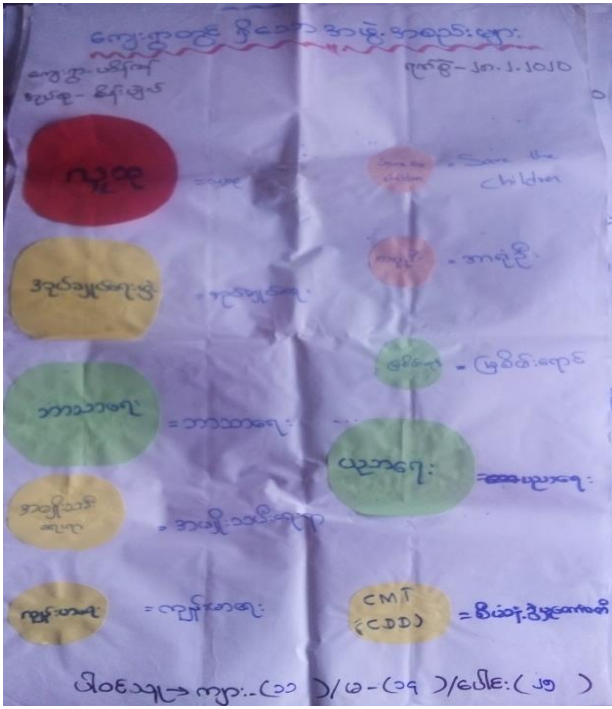 ကျေးရွာတွင် ရှိသော အဖွဲ့အစည်းများ
ကျေးရွာ-
ရက်စွဲ - ၂၈.၂.၂၀၂၀
အုပ်စု -
လူထု
Save the children = Save the
Children
အုပ်ချုပ်ရေးအဖွဲ့ = အုပ်ချုပ်ရေး
= အာရုံဦး
မြစိမ်းရောင် = မြစိမ်းရောင်
ဘာသာရေး = ဘာသာရေး
ပညာရေး = ပညာရေး
အမျိုးသမီးရေးရာ = အမျိုးသမီးရေးရာ
ကျန်းမာရေး = ကျန်းမာရေး
CMT
(CDD) = စီမံခန့်ခွဲမှုကော်မတီ
ပါဝင်သူ → ကျား-(၁၁ )/မ-(၁၄ )/ပေါင်း(၂၅ )